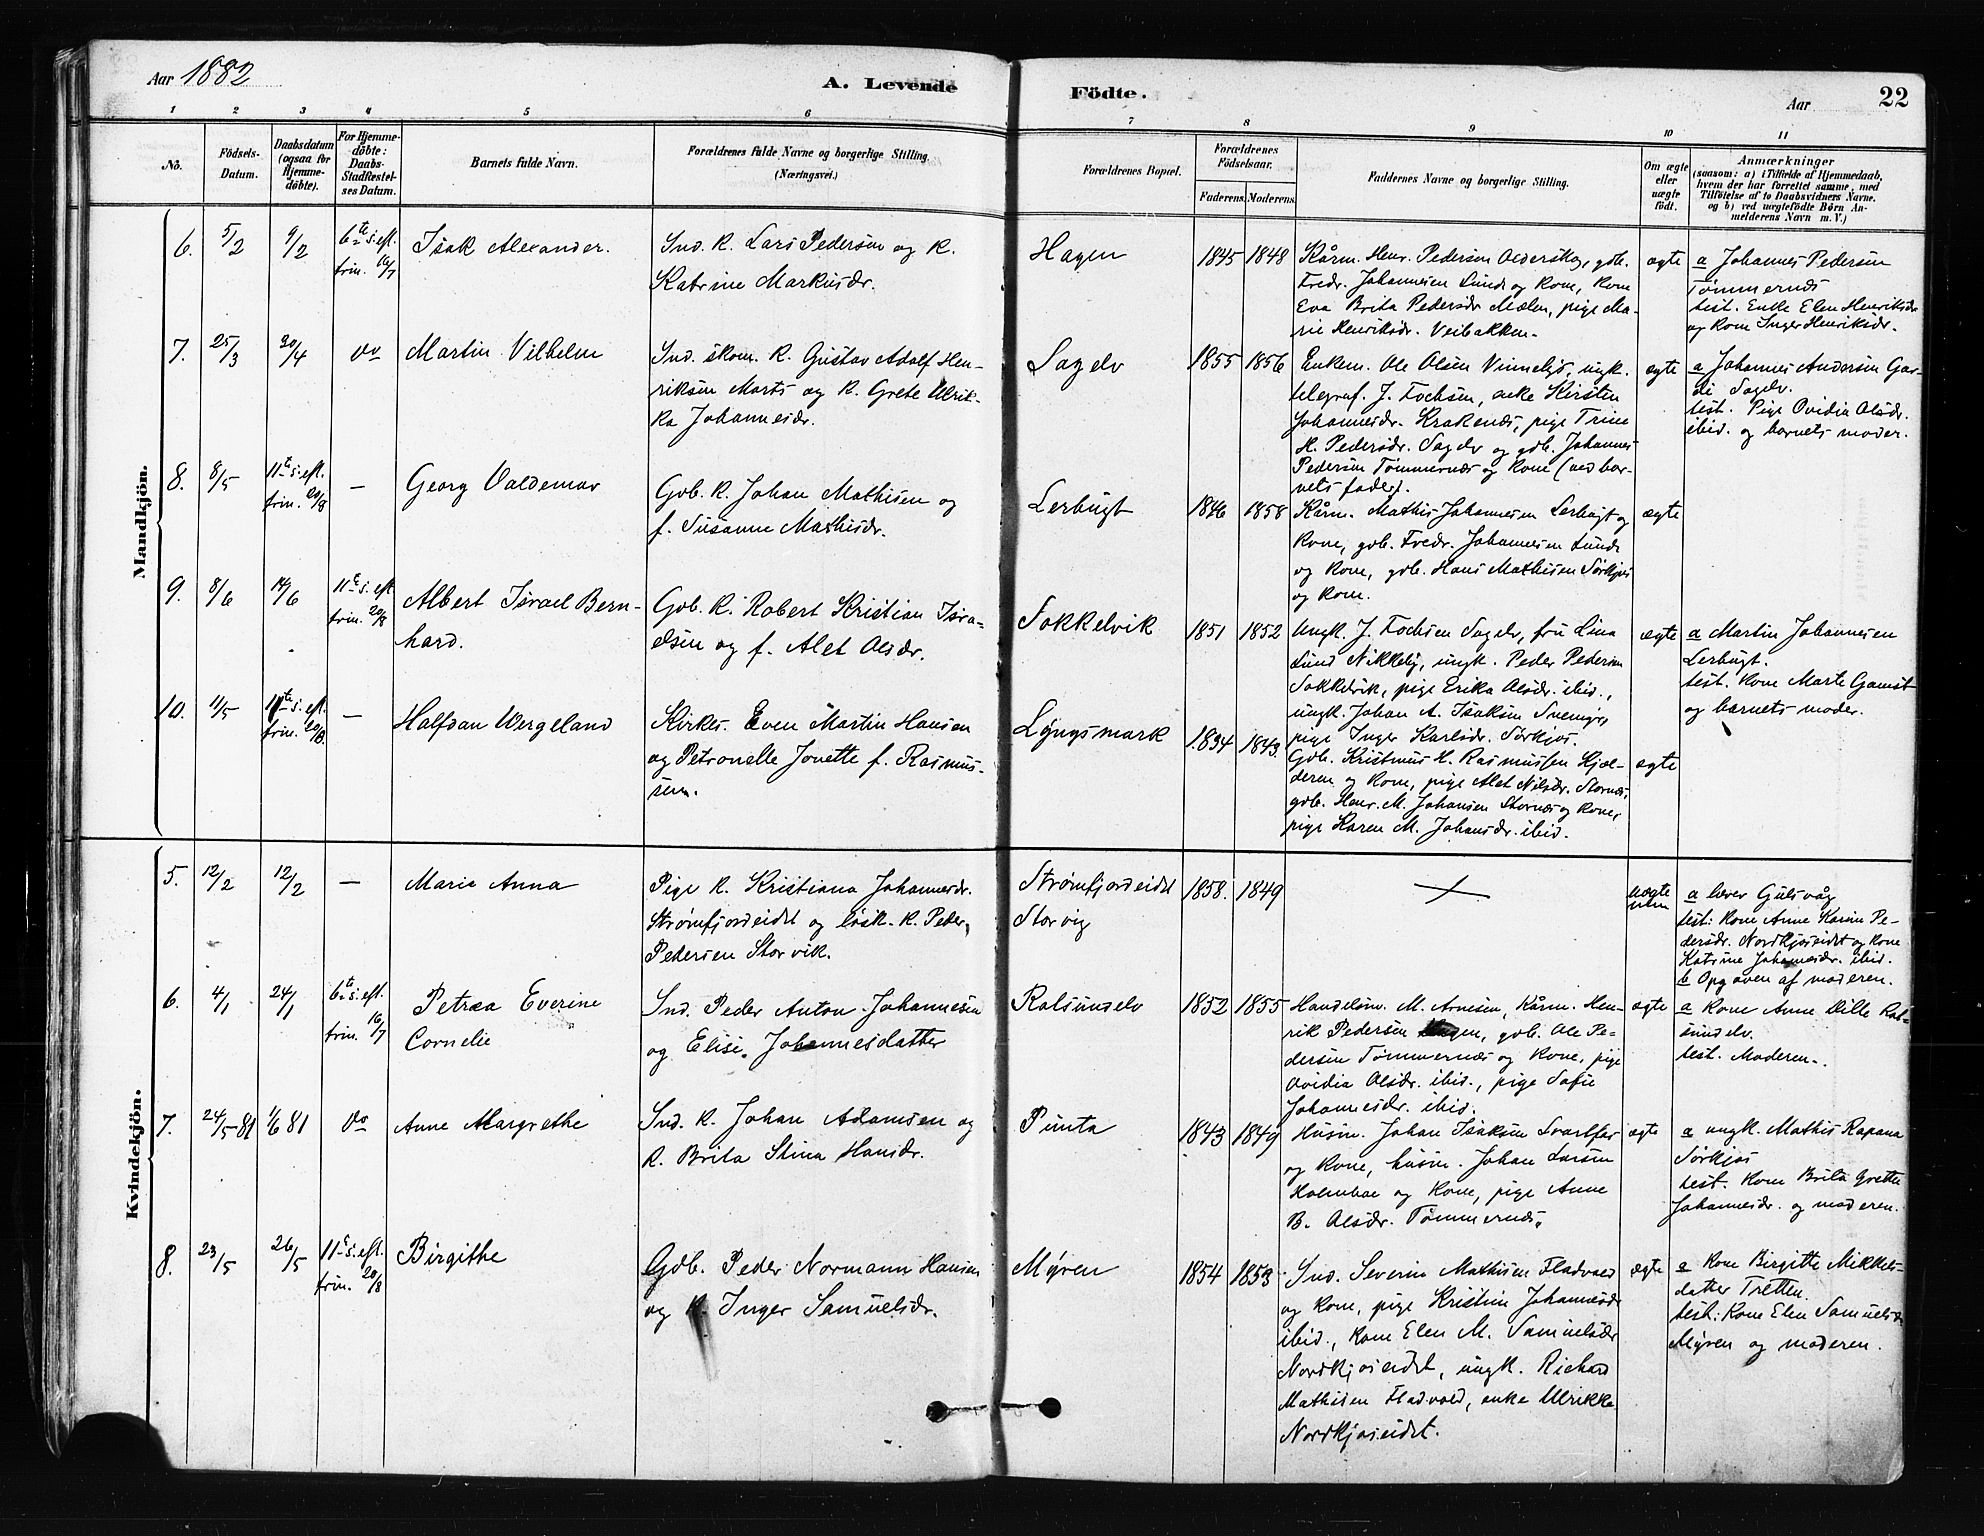 Aar 1882
A. Levende Födte.
Aar
22
1 2 3 4 5 6 7 8 9 10 11
No.
Födsels-Datum.
Daabsdatum (ogsaa for Hjemme-döbte).
For Hjemme-döbte: Daabs-Stadfæstel-ses Datum.
Barnets fulde Navn.
Forældrenes fulde Navne og borgerlige Stilling. (Næringsvei.)
Forældrenes Bopæl.
Forældrenes Födselsaar.
Faderens. Moderens.
Faddernes Navne og borgerlige Stilling.
Om ægte eller uægte födt.
Anmærkninger
(saasom: a) i Tilfælde af Hjemmedaab,
hvem der har forrettet samme, med
Tilföielse af to Daabsvidners Navne.
og b) ved uægtefödte Börn An-
melderens Navn m. V.)
Mandkjön.
6. 5/2 9/2 6te s. eft. trin. 16/7
Isak Alexander.
Ind. K. Lars Pedersen og K.
Katrine Markusdr.
Hagen
1845 1848
Kårm. Henr. Pedersen Olderskog, gdb.
Fredr. Johannesen Lund og Kone, Kone
Eva Brita Pedersdr. Mælen, pige Ma-
rie Henriksdr. Veibakken.
ægte
a Johannes Pedersen
Tømmernæs
test. Enke Elen Henriksdr.
og Kone Inger Henriksdr.
7. 25/3 30/4 do
Martin Vilhelm
Ind. skom. K. Gustav Adolf Hen-
riksen Marts og K. Grete Ulrik-
ka Johannesdr.
Sagelv
1855 1856
Enkem. Ole Olsen Vinnelys, ungk.
telegraf. J. Fochsen, enke Kirsten
Johannesdr. Krakenæs, pige Trine
H. Pedersdr. Sagelv og gdb. Johannes
Pedersen Tømmernæs og Kone (ved bar-
nets fader).
ægte
a Johannes Andersen Gar-
di Sagelv.
test. Pige Ovidia Olsdr.
ibid. og barnets moder.
8. 8/5 11te s. eft. trin. 20/8 —
Georg Valdemar
Gdb. K. Johan Mathisen og
f. Susanne Mathisdr.
Lerbugt
1846 1858
Kårm. Mathis Johannesen Lerbugt og
Kone, gdb. Fredr. Johannesen Lund
og Kone, gdb. Hans Mathisen Sørkjos
og Kone.
ægte
9. 8/6 14/6 11te s. eft trin. 20/8
Albert Israel Bern-
hard.
Gdb. K. Robert Kristian Isra-
elsen og f. Alet Olsdr.
Sokkelvik
1851 1852
Ungk. J. Fochsen Sagelv, fru Lina
Lund Nikkeby, ungk. Peder Pedersen
Sokkelvik, pige Erika Olsdr. ibid.,
ungk. Johan A. Isaksen Svenigr,
pige Inger Karlsdr. Sørkjos.
ægte
a Martin Johannesen
Lerbugt.
test. Kone Marte Gamst
og barnets moder.
10. 11/5 11te s. eft. trin. 20/8 —
Halfdan Wergeland
Kirkes. Even Martin Hansen
og Petronelle Jonette f. Rasmus-
sen.
Lyngsmark
1834 1843
Gdb. Kristmus H. Rasmussen Hjel-
deren og Kone, pige Alet Nilsdr. Stornæs,
gdb. Henr. M. Johansen Stornæs og Kone,
pige Karen M. Johansdr. ibid.
ægte
Kvindekjön.
5. 12/2 12/2 —
Marie Anna
Pige K. Kristiana Johannesdr.
Strømfjordeidet og løsk. K. Peder
Pedersen Storvik.
Strømfjordeidet
Storvig
1858. 1849
uægte
a lærer Gulsvåg
test: Kone Anne Karine Pe-
dersdr. Nordkjoseidet og Kone
Katrine Johannesdr. ibid.
b Opgaven af moderen.
6. 4/1 24/1 6te s. eft. trin. 16/7
Petrea Everine
Cornelie
Ind. Peder Anton Johannesen
og Elise Johannesdatter
Rotsundelv
1852 1855
Handelsm. M. Arnesen, Kårm. Hen-
rik Pedersen Hagen, gdb. Ole Pe-
dersen Tømmernæs og Kone, pige
Ovidia Olsdr. ibid., pige Sofie
Johannesdr. ibid.
ægte
a Kone Anne Dille Rot-
sundelv.
test. Moderen.
7. 24/5-81 1/6 81 do
Anne Margrethe
Ind. K. Johan Adamsen og
K. Brita Stina Hansdr.
Punta
1843 1849
Husm. Johan Isaksen Svartfos
og Kone, husm. Johan Larsen
Holmbae og Kone, pige Anne
B. Olsdr. Tømmernæs.
ægte
a ungk. Mathis Rapana
Sørkjos
test. Kone Brita Grethe
Johannesdr. og moderen.
8. 23/5 26/5 11te s. eft. trin. 20/8
Birgithe
Gdb. Peder Normann Hansen
og K. Inger Samuelsdr.
Myren
1854 1853
Ind. Severin Mathisen Fladvold
og Kone, pige Kristine Johannesdr
ibid., Kone Elen M. Samuelsdr
Nordkjoseidet, ungk. Richard
Mathisen Fladvold, enke Ulrikke
Nordkjoseidet.
ægte
a Kone Birgitte Mikkels-
datter Tretten.
test: Kone Elen Samuelsdr
Myren og moderen.